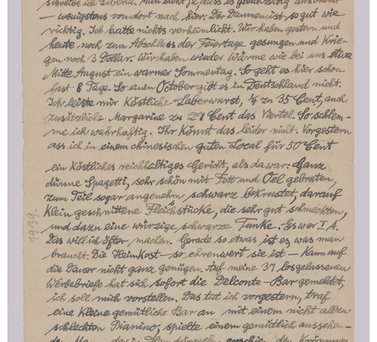 wenigstens von dort nach hier. Der Daumen ist, so gut wie
richtig. Ich hatte nichts verheimlicht. Wir haben gestern und
heute noch zum Abschluss der Feiertage gesungen und Krie-
gen noch 3 Dollar. Wir haben wieder Wärme wie bei uns etwa
Mitte August ein warmer Sommertag. So geht es hier schon
fast 8 Tage. So einen Oktober gibt es in Deutschland nicht.
Ich leiste mir Köstliche Leberwurst, ¼ zu 35 Cent, auch
zusätzliche Margarine zu 28 Cent das Viertel. So schlem-
me ich wahrhaftig. Ihr Könnt das leider nicht. Vorgestern
ass ich in einem chinesischen guten Local für 50 Cent
ein Köstliches reichhaltiges Gericht, als da war: Ganz
dünne Spagetti, sehr schön mit Fett und Oel gebraten,
zum Teil sogar angenehm schwarz bekrustet, darauf
Klein geschnittene Fleischstücke, die sehr gut schmeckten,
und dazu eine würzige, schwarze Tunke. Es war I A.
Das will ich öfter machen. Gerade so etwas ist es was man
braucht. Die Heimkost – so ehrenwert sie ist – Kam auf
die Dauer nicht ganz genügen. Auf meine 37 losgelassenen
Werbebriefe hat sich sofort die Delconte-Bar gemeldet,
ich soll mich vorstellen. Das tat ich vorgestern, traf
eine Kleine gemütliche Bar an mit einem nicht allzu
schlechten Pianino, spielte einem gemütlich aussehen-
1939.